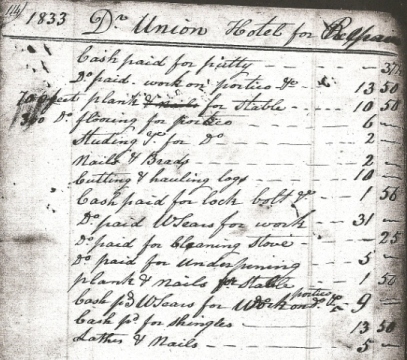 141
1833 Dr Union Hotel for
Cash paid for putty — 37½
Do paid work on portico &c 13 50
700 feet plank & nails for Stable - 10 50
300 Do. flooring for portico 6 —
Studing &c for Do 2 —
Nails & Brads — 2 —
Cutting & hauling logs — 10 —
Cash paid for lock bolts &c 1 56
Do paid W Sears for work 31 —
Do paid for Cleaning Stove - 25
Do paid for Underpening 5 —
plank & Nails for Stable 1 50
Cash pd W Sears for Work on portico Do &c 9 —
Cash pd. for Shingles - 13 50
Lathes & Nails — 5 —